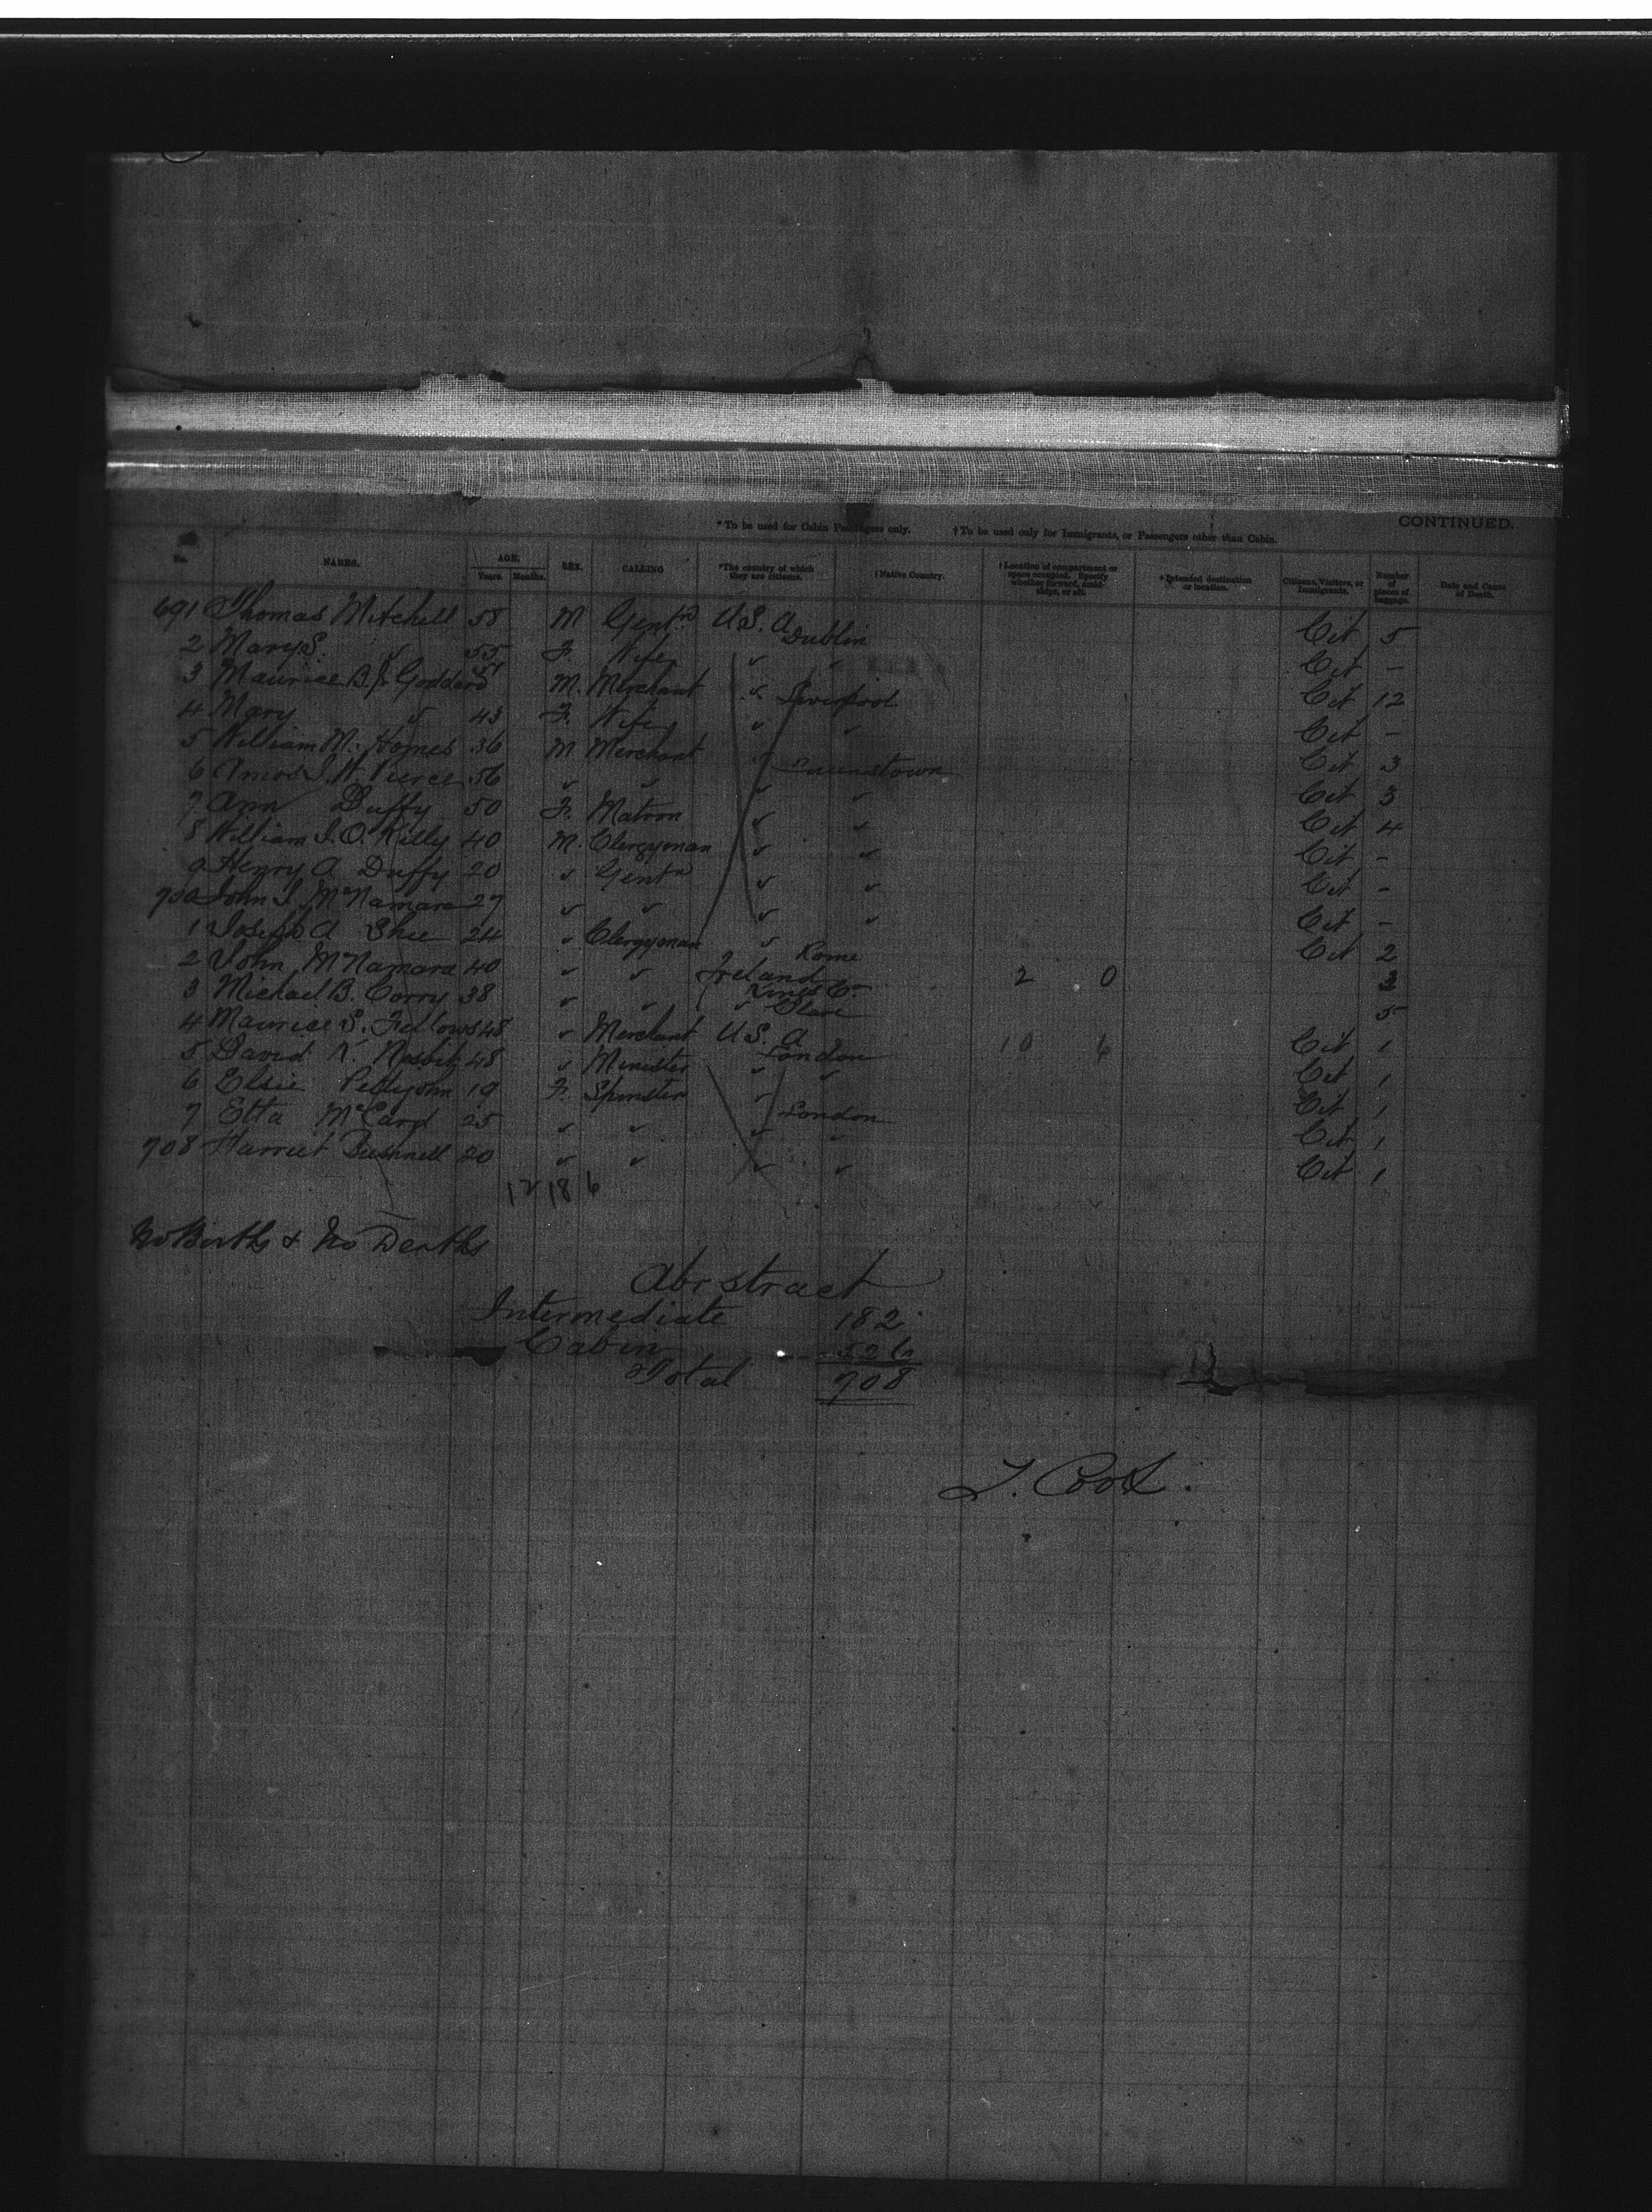 CONTINUED.
*To be used for Cabin Passengers only. †To be used only for Immigrants, or Passengers other than Cabin.
No. NAMES. AGE. Years. Months. SEX. CALLING *The country of which they are citizens. †Native Country. †Location of compartment or space occupied. Specify whether forward, amidships, or aft. †Intended destination or location. Citizens, Visitors, or Immigrants. Number of pieces of baggage. Date and Cause of Death.
691 Thomas Mitchell 58 M Gentn U.S.A. Dublin Cit 5
2 Mary S. " 55 F. Wife " " Cit -
3 Maurice B. Goddard 51 M. Merchant " Liverpool Cit 12
4 Mary " 43 F. Wife " " Cit -
5 William M. Homes 36 M Merchant " Queenstown Cit 3
6 Amos J. W. Pierce 56 " " " " Cit 3
7 Ann Duffy 50 F. Matron " " Cit 4
8 William J. O. Kelly 40 M. Clergyman " " Cit -
9 Henry A Duffy 20 " Gentn " " Cit -
700 John J. McNamara 27 " " " " Cit -
1 Joseph A Shee 24 " Clergyman " Rome Cit 2
2 John McNamara 40 " " Ireland Kings Co. 2 0 3
3 Michael B. Corry 38 " " " Clare 5
4 Maurice S. Fellows 48 " Merchant U.S.A London 10 6 Cit 1
5 David K. Nesbit 48 " Minister " " Cit 1
6 Elsie Pettyjohn 19 F. Spinster " London Cit 1
7 Etta McCard 25 " " " " Cit 1
708 Harriet Bushnell 20 " " " " Cit 1
12 18 6
No Births & No Deaths
Abrstract
Intermediate 182
Cabin 526
Total 708
T. Cook.